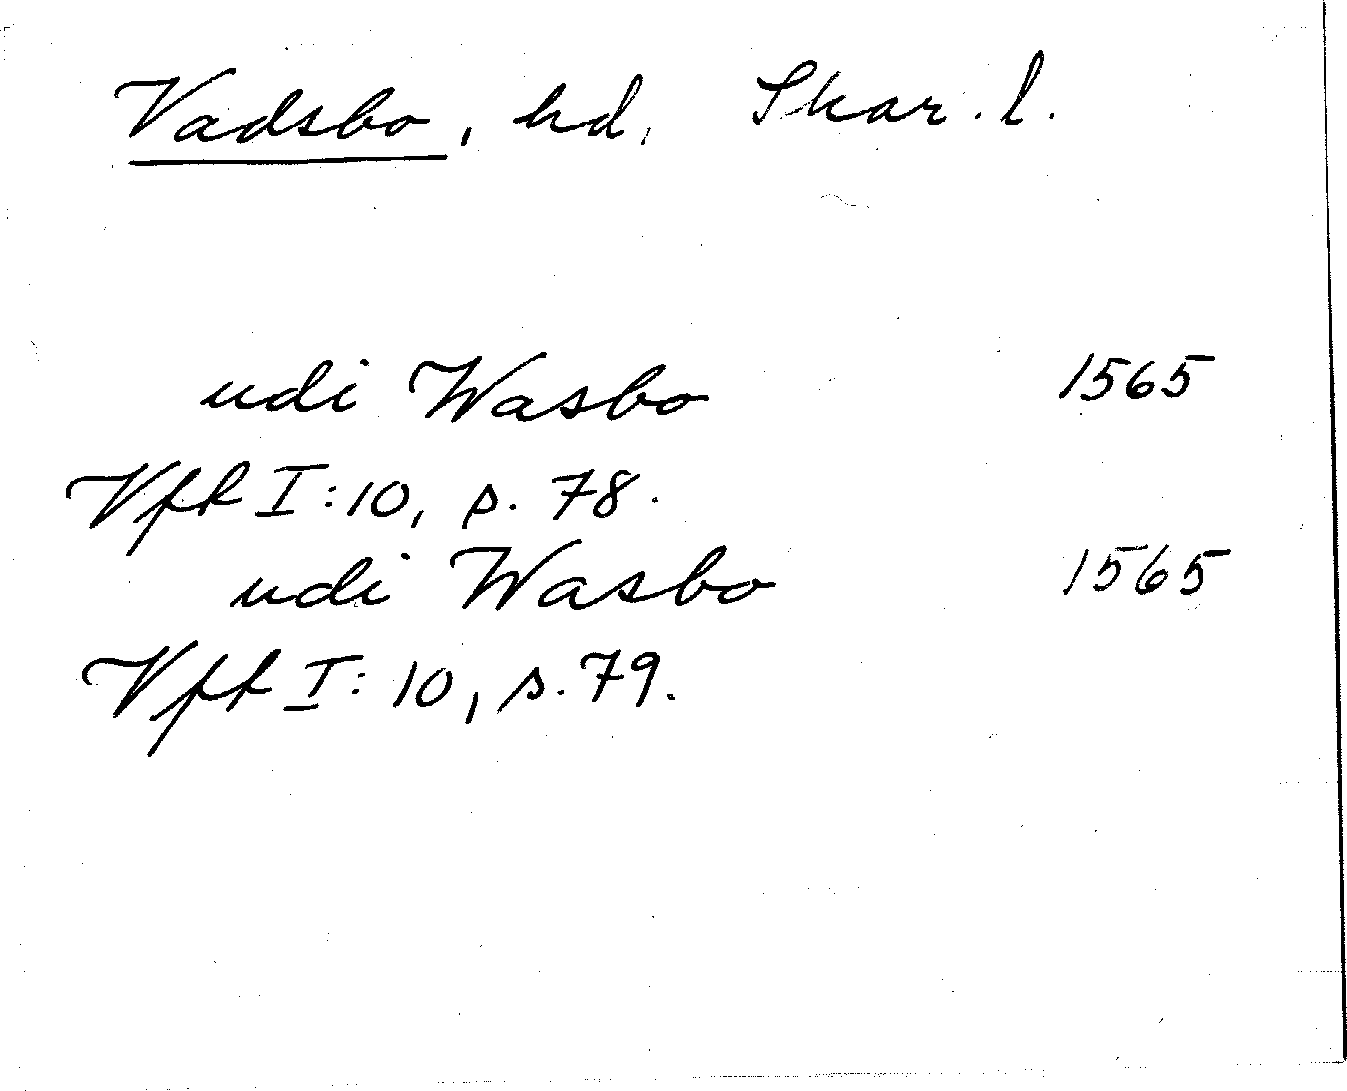 Vadsbo, hd, Skar. l.
udi Wasbo 1565
Vfk I:10, s. 78.
udi Wasbo 1565
Vfk I:10, s. 79.